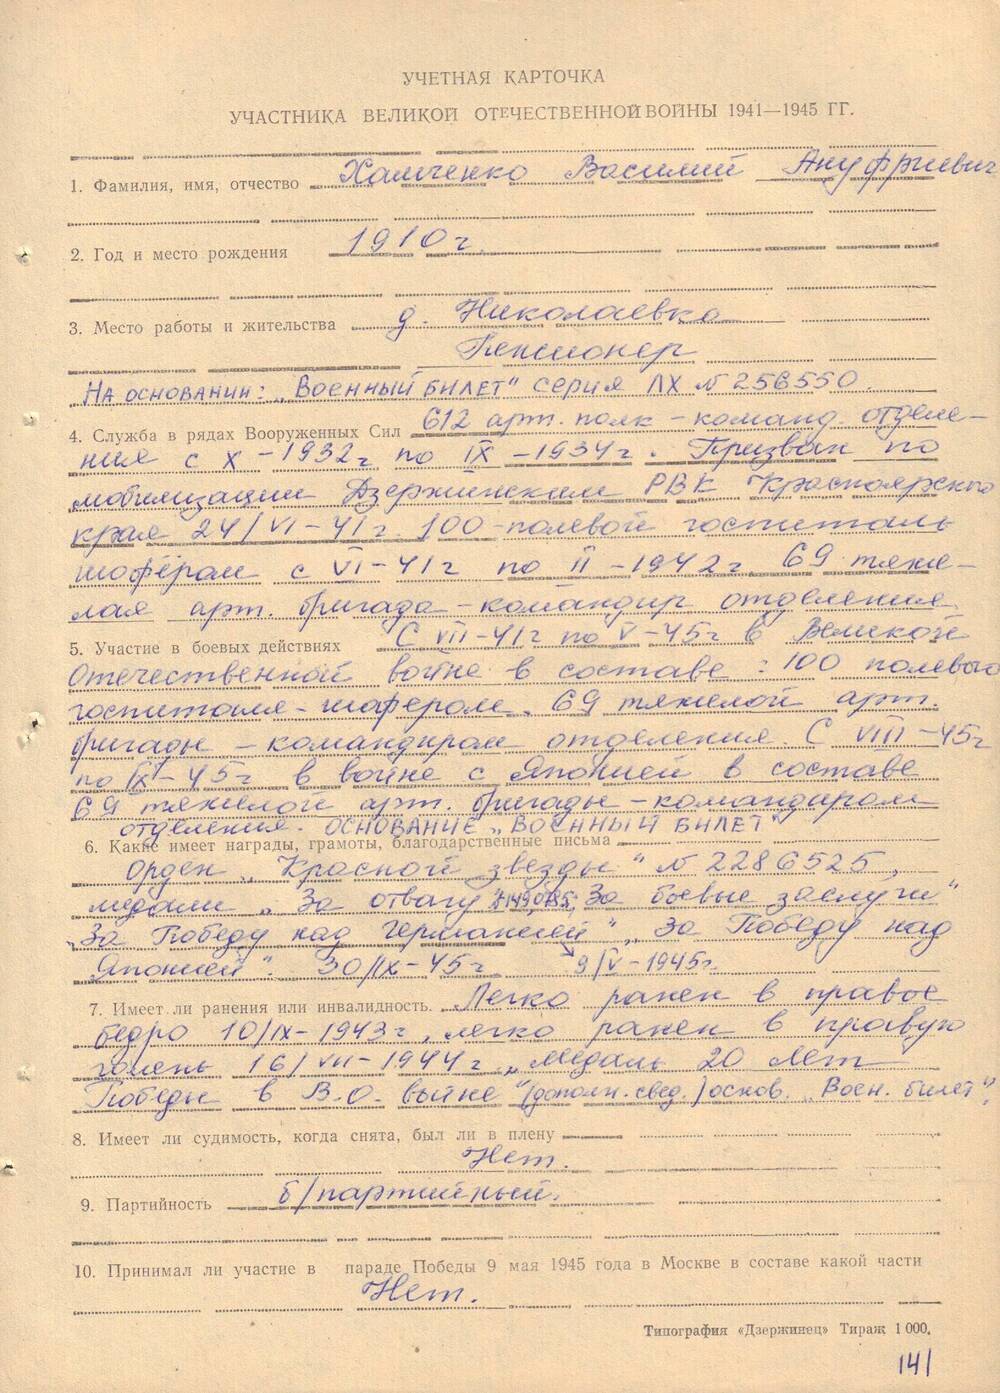 УЧЕТНАЯ КАРТОЧКА
УЧАСТНИКА ВЕЛИКОЙ ОТЕЧЕСТВЕННОЙ ВОЙНЫ 1941—1945 ГГ.
1. Фамилия, имя, отчество Хамченко Василий Ануфриевич
2. Год и место рождения 1910 г.
3. Место работы и жительства д. Николаевка
Пенсионер
На основании: „Военный билет" серия ЛХ № 256550.
4. Служба в рядах Вооруженных Сил 612 арт. полк – команд. отделе-
ния с X – 1932 г по IX – 1934 г. Призван по
мобилизации Дзержинским РВК Красноярского
края 24/VI – 41 г. 100 – полевой госпиталь
шофёром с VI – 41 г по II – 1942 г 69 тяже-
лая арт. бригада – командир отделения.
5. Участие в боевых действиях С VII – 41 г по V – 45 г в Великой
Отечественной войне в составе: 100 полевого
госпиталя – шофером. 69 тяжелой арт.
бригады – командиром отделения. С VIII – 45 г
по IX – 45 г в войне с Японией в составе
69 тяжелой арт. бригады – командиром
отделения. Основание „Военный билет"
6. Какие имеет награды, грамоты, благодарственные письма
Орден „Красной звезды" № 2286525,
медали „За отвагу" „За боевые заслуги"
„За Победу над Германией", „За Победу над
Японией". 30/IX – 45 г. 9/V – 1945 г.
7. Имеет ли ранения или инвалидность. Легко ранен в правое
бедро 10/IX – 1943 г, легко ранен в правую
голень 16/VII – 1944 г „медаль 20 лет
Победы в В.О. войне" (дополн. свед.) основ. „Воен. билет".
8. Имеет ли судимость, когда снята, был ли в плену
Нет.
9. Партийность б/партийный.
10. Принимал ли участие в параде Победы 9 мая 1945 года в Москве в составе какой части
Нет.
Типография «Дзержинец» Тираж 1 000.
141